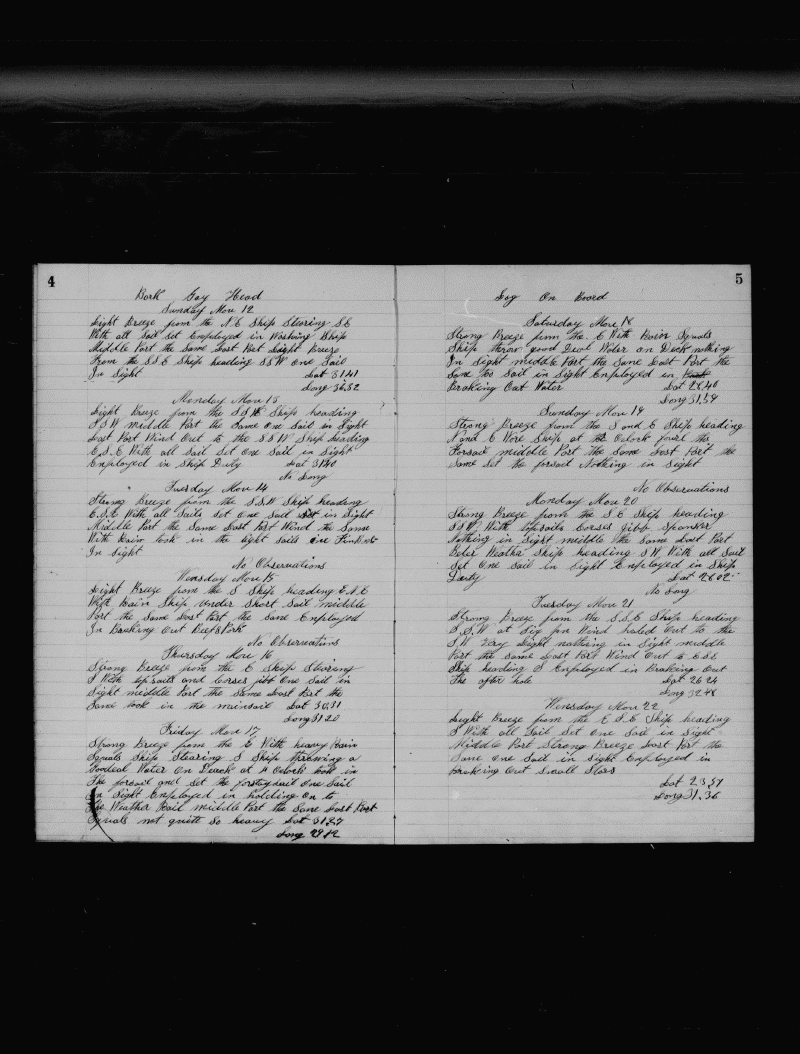 4
Bark Gay Head
Sunday Nov 12
Light Breeze from the N.E Ship Stearing S.E
With all Sail Set Employed in Washing Ship
Middle Part the Same Last Part Light Breeze
From the S.S.E Ship heading S.S.W One Sail
In Sight Lat 31.41
Long 36.32
Monday Nov 13
Light Breeze from the S.S.E Ship heading
S.S.W middle Part the Same One Sail in Sight
Last Part Wind Out to the S.S.W Ship heading
E.S.E With all Sail Set One Sail in Sight
Employed in Ship Duty Lat 31.40
No Long
Tuesday Nov 14
Strong Breeze from the S.S.W Ship heading
E.S.E With all Sails Set One Sail in Sight
Middle Part the Same Last Part Wind the Same
With Rain took in the light Sails
In Sight
No Observations
Wensday Nov 15
Light Breeze from the S Ship heading E.N.E
With Rain Ship Under Short Sail middle
Part the Same Last Part the Same Employed
In Braking Out Beef & Pork
No Observations
Thursday Nov 16
Strong Breeze from the E Ship Stearing
S With tipsails and Corses jibb One Sail in
Sight middle Part the Same Last Part the
Same took in the mainsail Lat 30.31
Long 31.20
Friday Nov 17
Strong Breeze from the E With heavy Rain
Squals Ship Stearing S Ship throwing a
Goodeal Water On Deack at 4 Oclock took in
The forsail and Set the forstaysail One Sail
In Sight Employed in holding On to
The Weather Rail middle Part the Same Last Part
Squals not quite So heavy Lat 31.27
Long 29.12
5
Log On Board
Saturday Nov 18
Strong Breeze from the E With Rain Squals
Ship throw good Deal Water on Deck nothing
In Sight middle Part the Same Last Part the
Same No Sail in Sight Employed in
Braking Out Water Lat 28.40
Long 31.54
Sunday Nov 19
Strong Breeze from the S and E Ship heading
N and E Wore Ship at Oclock furl the
Forsail middle Part the Same Last Part the
Same Set the forsail Nothing in Sight
No Observations
Monday Nov 20
Strong Breeze from the S.E Ship heading
S.S.W With tipsails Corses jibb Spanker
Nothing in Sight middle the Same Last Part
Beter Weatha Ship heading S.W With all Sail
Set One Sail in Sight Employed in Ship
Duty Lat 28.02
No Long
Tuesday Nov 21
Strong Breeze from the S.S.E Ship heading
S.S.W at Six Wind haled Out to the
S.W Very Light nothing in Sight middle
Part the Same Last Part Wind Out to E.S.E
Ship heading S Employed in Braking Out
The after hole Lat 26.24
Long 32.48
Wensday Nov 22
Light Breeze from the E.S.E Ship heading
S With all Sail Set One Sail in Sight
Middle Part Strong Breeze Last Part the
Same One Sail in Sight Employed in
Braking Out Small Stors
Lat 23.57
Long 31.36